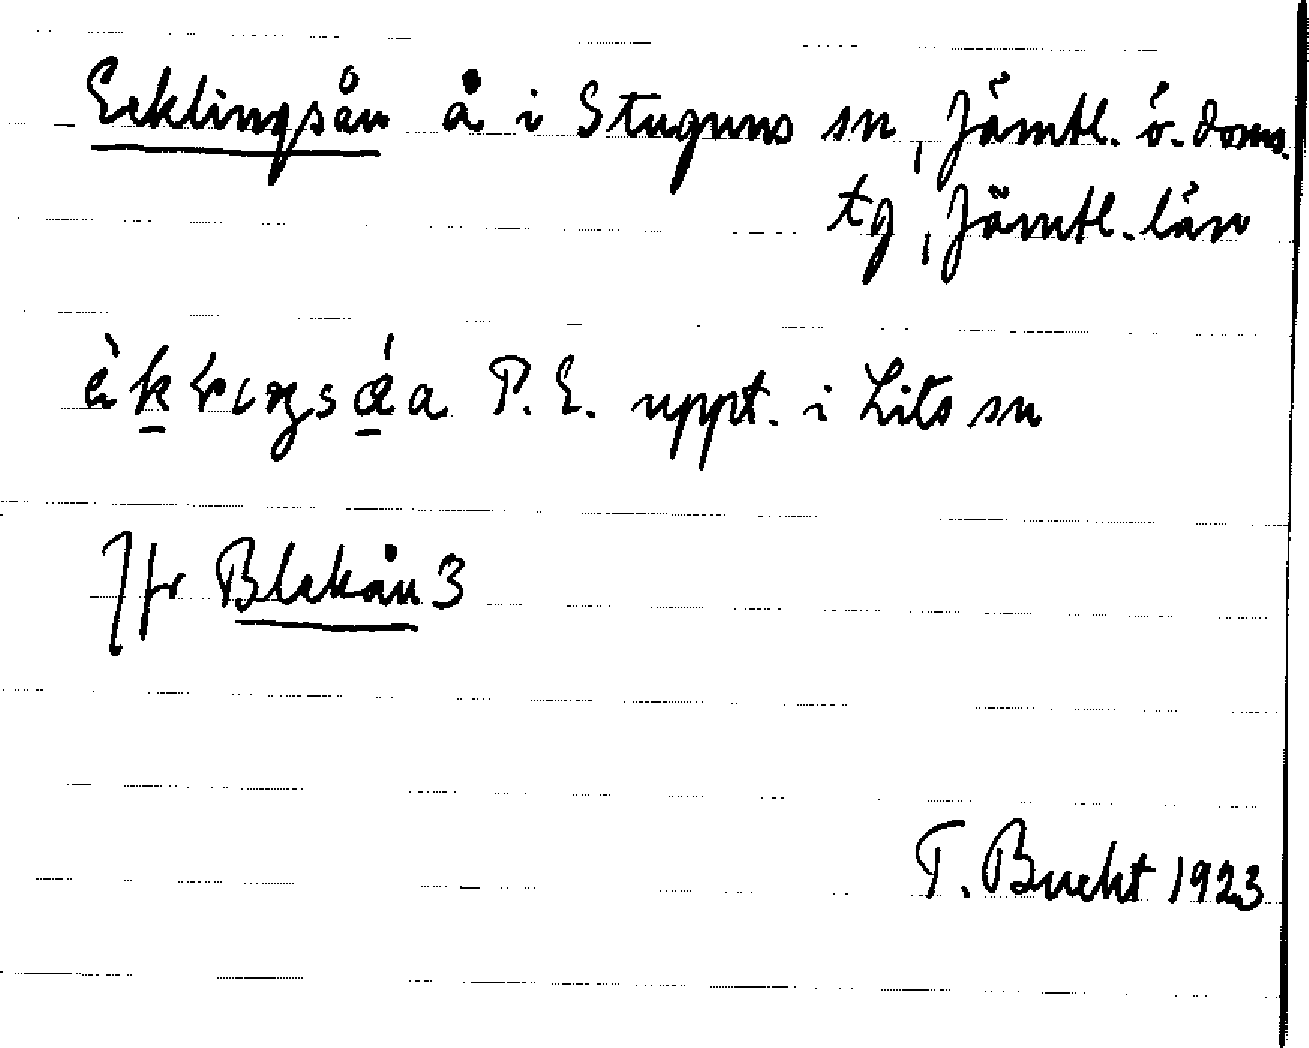 Ecklingsån å i Stuguns sn, Jämtl. ö. doms.
tg, Jämtl. län
P. E. uppt. i Lits sn
Jfr Blekån 3
T. Bucht 1923